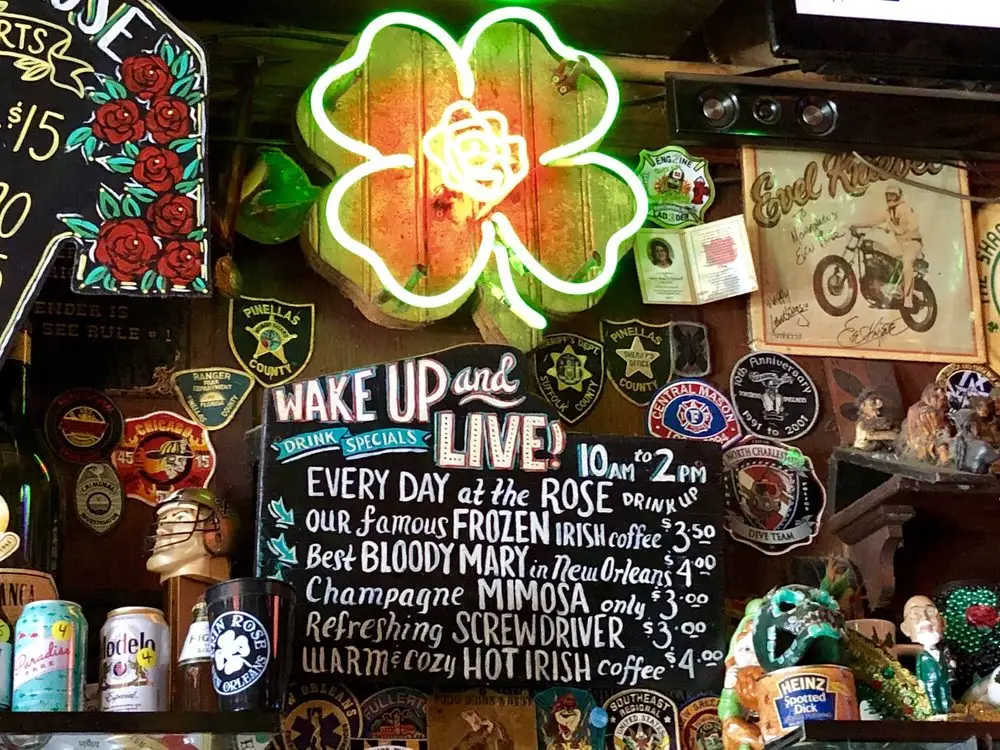 OSE
RTS
$15
ENDER IS
SEE RULE #1
ENGINE
Evel Knievel
PINELLAS
COUNTY
RANGER
PINELLAS
SHERIFF'S
OFFICE
COUNTY
SHERIFF'S DEPT.
SUFFOLK
COUNTY
CENTRAL MASON
10th Anniversary
1991 to 2001
CHICAGO
45
15
CRIMINAL
NORTH CHARLESTON
DIVE TEAM
WAKE UP and
LIVE!
DRINK SPECIALS
10 AM to 2 PM
EVERY DAY at the ROSE DRINK UP
OUR famous FROZEN IRISH coffee $3.50
Best BLOODY MARY in New Orleans $4.00
Champagne MIMOSA only $3.00
Refreshing SCREWDRIVER $3.00
WARM & Cozy HOT IRISH coffee $4.00
Paradise
PARK
4
Modelo
Especial
4
HIG
ERIN ROSE
NEW ORLEANS
HEINZ
Spotted
Dick
SOUTHEAST
REGIONAL